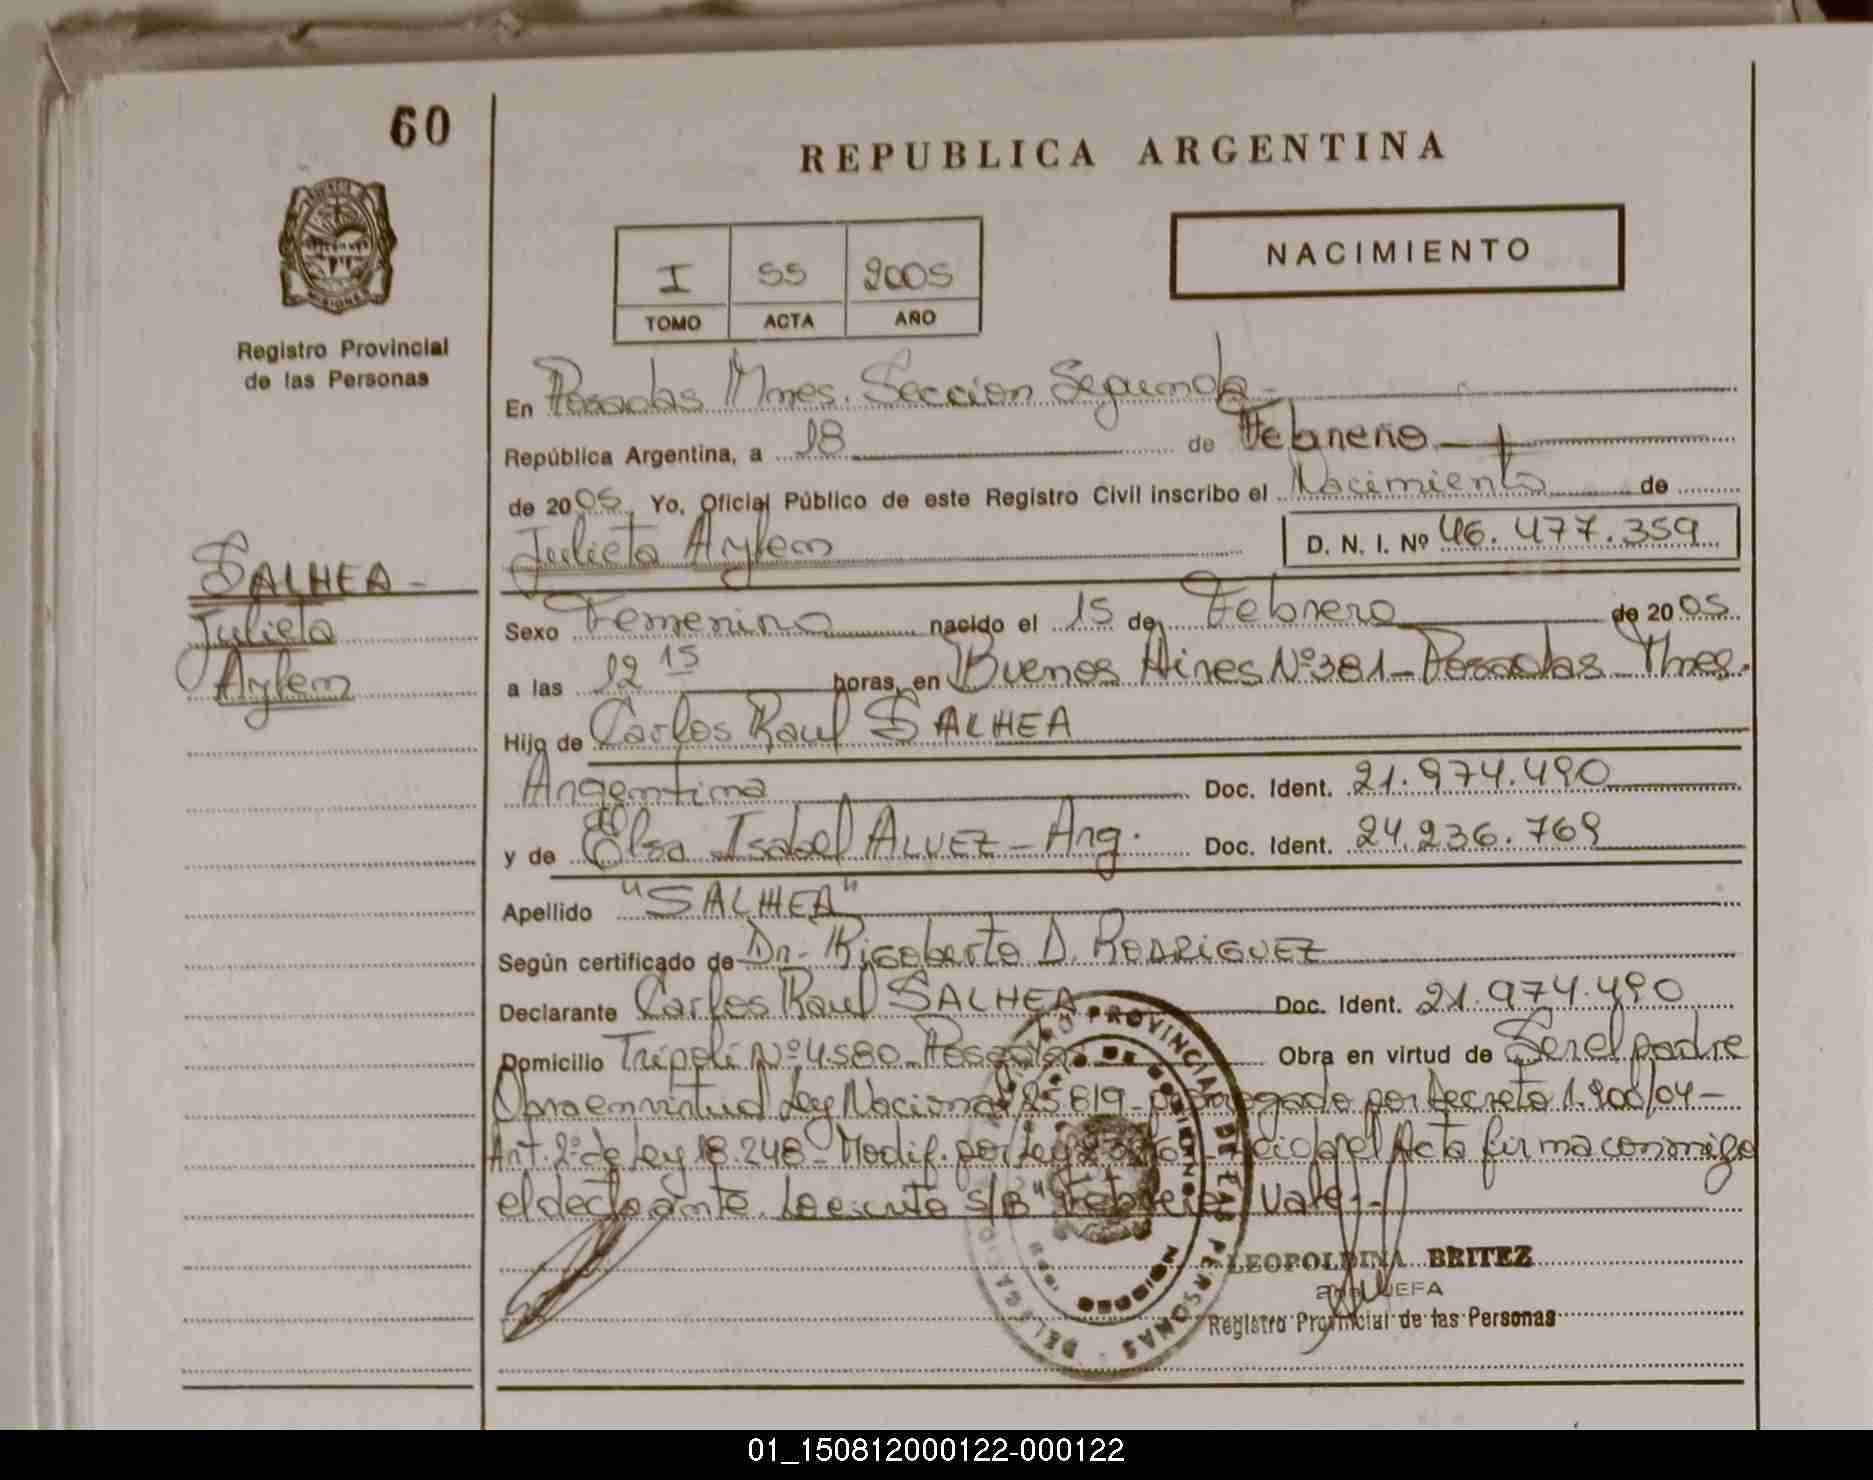 60
REPUBLICA ARGENTINA
MISIONES
Registro Provincial
de las Personas
I 55 2005
TOMO ACTA AÑO
NACIMIENTO
En Posadas Mnes. Seccion Segunda
República Argentina, a 18 de Febrero
de 2005. Yo, Oficial Público de este Registro Civil inscribo el Nacimiento de
Julieta Aylem D. N. I. Nº 46.477.359
SALHEA-
Julieta
Aylem
Sexo Femenino nacido el 15 de Febrero de 2005
a las 12 15 horas, en Buenos Aires Nº 381-Posadas-Mnes.
Hijo de Carlos Raul SALHEA
Argentina Doc. Ident. 21.974.490
y de Elsa Isabel ALVEZ-Arg. Doc. Ident. 24.236.769
Apellido "SALHEA"
Según certificado de Dr. Rigoberto D. RODRIGUEZ
Declarante Carlos Raul SALHEA Doc. Ident. 21.974.490
Domicilio Tripoli Nº 4580-Posadas Obra en virtud de Ser el padre
Obra en virtud Ley Nacional 25819- por Decreto 1.900/04-
Art. 2º de Ley 18.248-Modif. por Ley el Acta firma conmigo
el declarante. Lo escrito s/B "Febrero" Vale.-
REGISTRO PROVINCIAL DE LAS PERSONAS
LEOPOLDINA BRITEZ
JEFA
Registro Provincial de las Personas
01_150812000122-000122